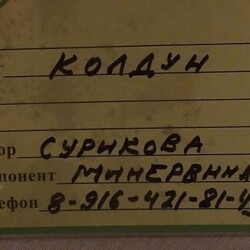 КОЛДУН
ор СУРИКОВА
понент МИНЕРВИНА
ефон 8-916-421-81-4